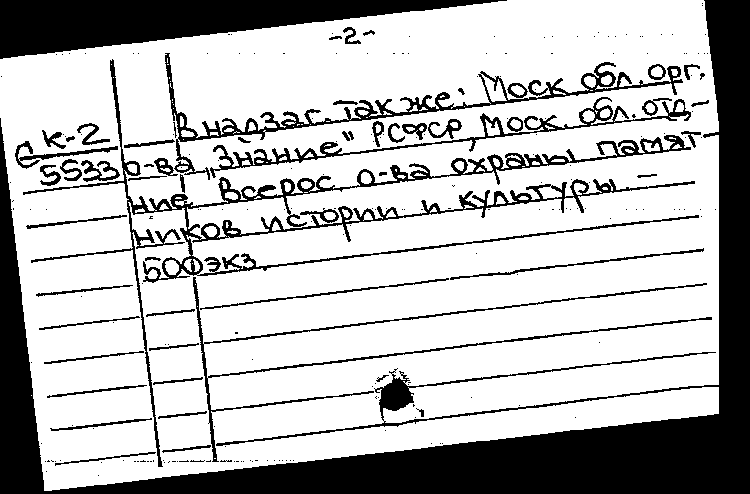 -2-
В надзаг. также: Моск обл. орг.
С К-2
5533
о-ва „Знание" РСФСР, Моск. обл. отд-
ние Всерос. о-ва охраны памят
ников истории и культуры. –
500экз.